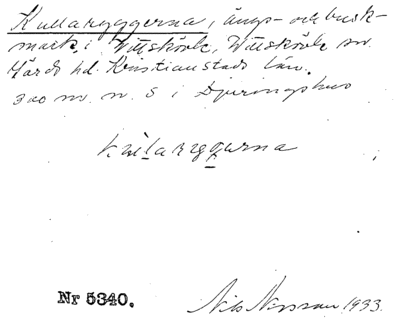 Kullaryggerna, ängs- och busk-
mark, i Vittskövle, Vittskövle sn.
Gärds hd. Kristianstads län.
300 m. n. S i Djuringshus
Kullaryggerna
Nr 5340.
Nils Nilsson 1933.